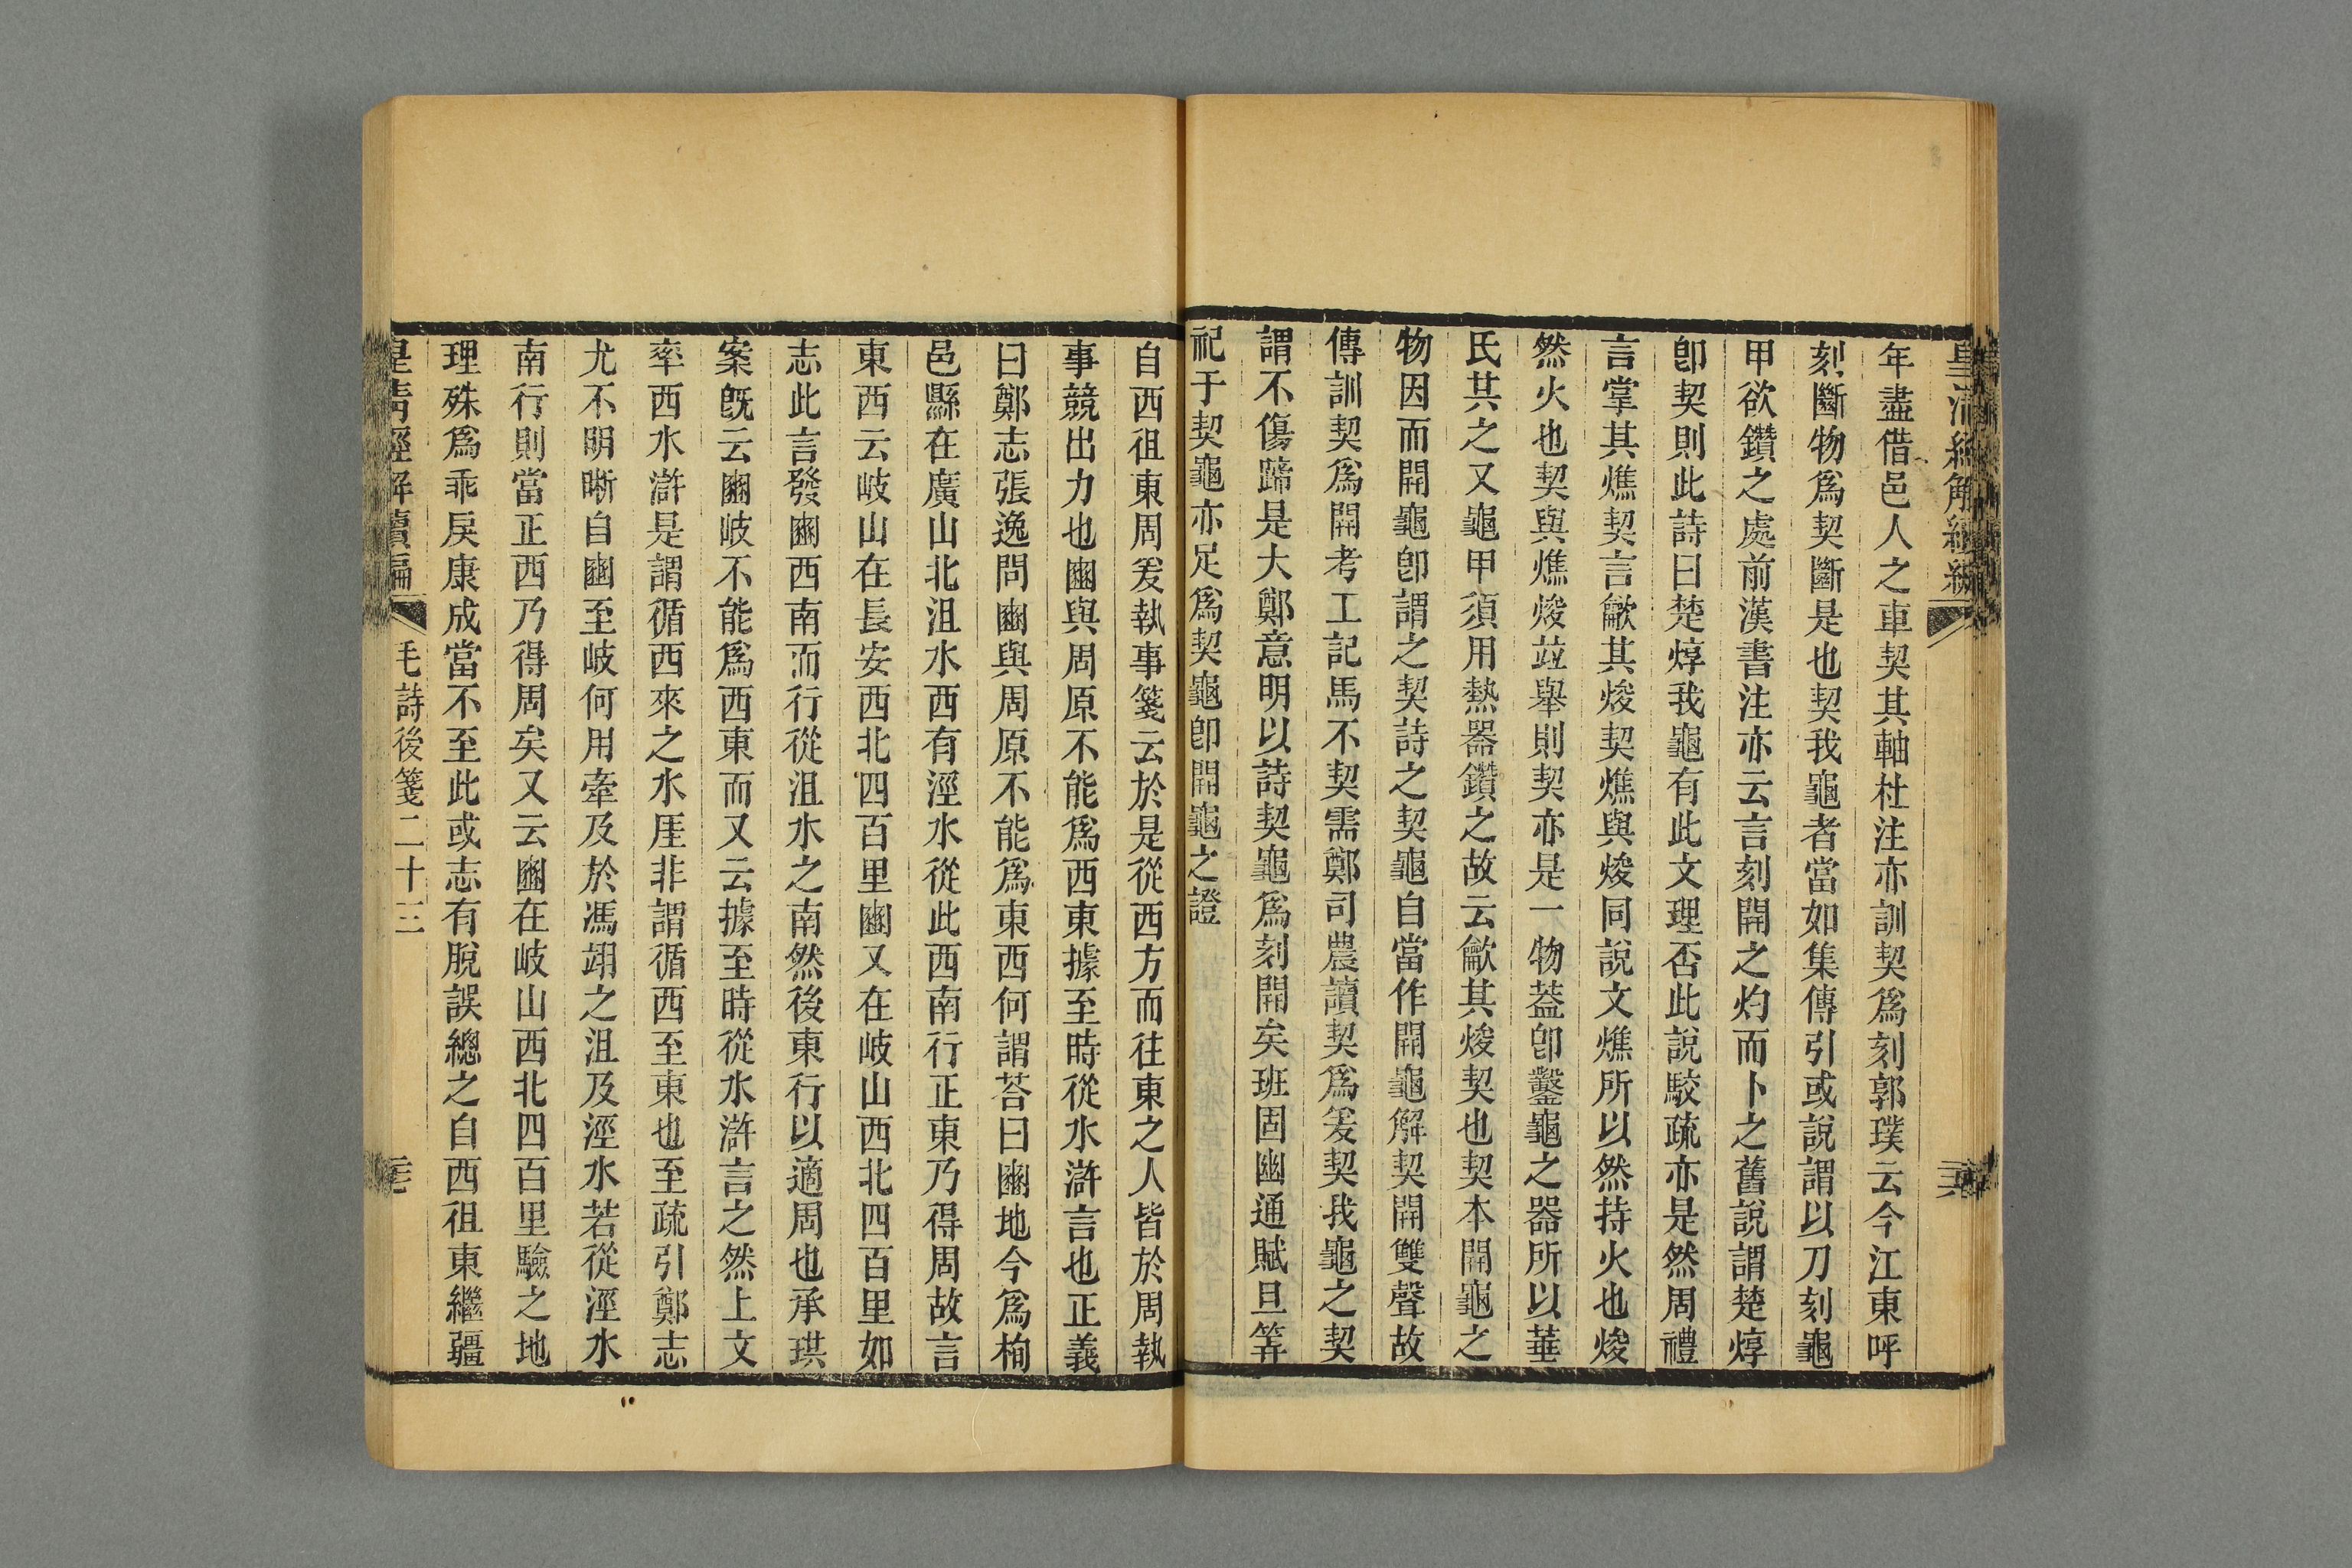 皇清經解續編
年盡借邑人之車契其軸杜注亦訓契爲刻郭璞云今江東呼
刻斷物爲契斷是也契我龜者當如集傳引或說謂以刀刻龜
甲欲鑽之處前漢書注亦云言刻開之灼而卜之舊說謂楚焞
卽契則此詩曰楚焞我龜有此文理否此說駮疏亦是然周禮
言掌其燋契言歈其焌契燋與焌同說文燋所以然持火也焌
然火也契與燋焌竝舉則契亦是一物葢卽鑿龜之器所以華
氏其之又龜甲須用熱器鑽之故云歈其焌契也契本開龜之
物因而開龜卽謂之契詩之契龜自當作開龜解契開雙聲故
傳訓契爲開考工記馬不契需鄭司農讀契爲爰契我龜之契
謂不傷蹄是大鄭意明以詩契龜爲刻開矣班固幽通賦旦筭
祀于契龜亦足爲契龜卽開龜之證
自西徂東周爰執事箋云於是從西方而往東之人皆於周執
事競出力也豳與周原不能爲西東據至時從水滸言也正義
曰鄭志張逸問豳與周原不能爲東西何謂荅曰豳地今爲栒
邑縣在廣山北沮水西有涇水從此西南行正東乃得周故言
東西云岐山在長安西北四百里豳又在岐山西北四百里如
志此言發豳西南而行從沮水之南然後東行以適周也承珙
案旣云豳岐不能爲西東而又云據至時從水滸言之然上文
率西水滸是謂循西來之水厓非謂循西至東也至疏引鄭志
尤不明晰自豳至岐何用牽及於馮翊之沮及涇水若從涇水
南行則當正西乃得周矣又云豳在岐山西北四百里驗之地
理殊爲乖戾康成當不至此或志有脫誤總之自西徂東繼疆
皇清經解續編 毛詩後箋二十三